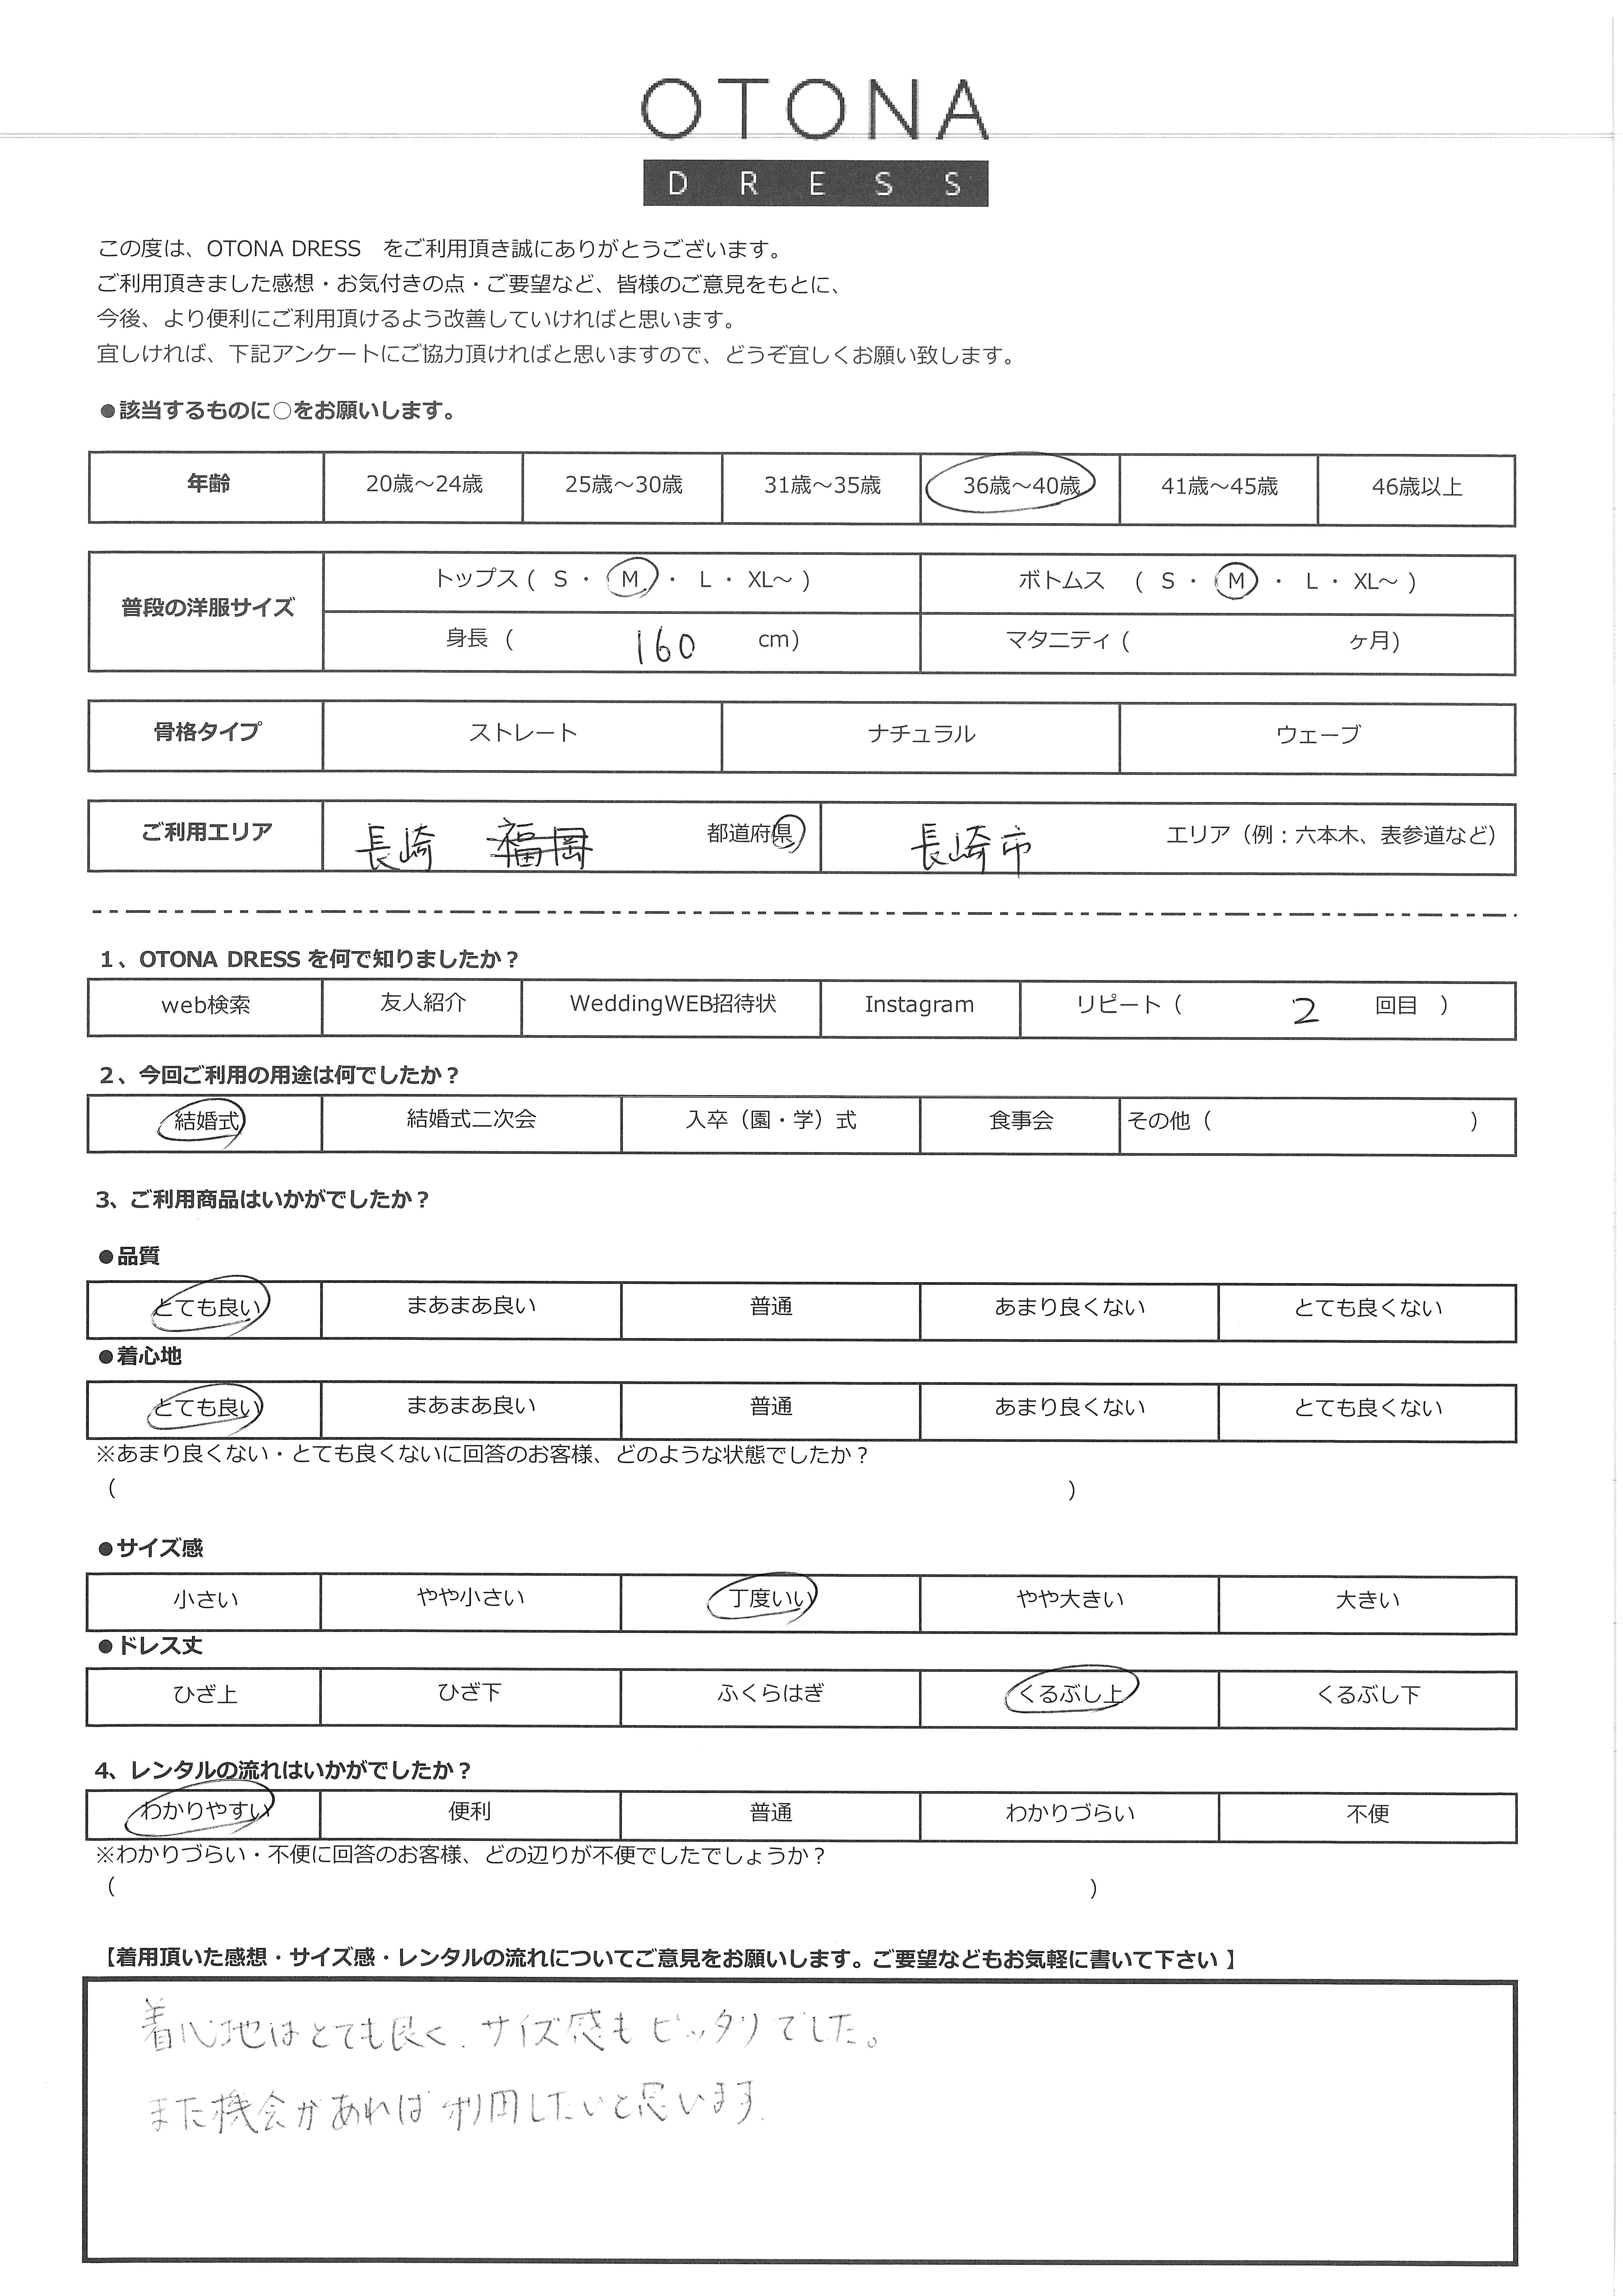 OTONA
DRESS
この度は、OTONA DRESS　をご利用頂き誠にありがとうございます。
ご利用頂きました感想・お気付きの点・ご要望など、皆様のご意見をもとに、
今後、より便利にご利用頂けるよう改善していければと思います。
宜しければ、下記アンケートにご協力頂ければと思いますので、どうぞ宜しくお願い致します。
●該当するものに○をお願いします。
年齢 20歳～24歳 25歳～30歳 31歳～35歳 36歳～40歳 41歳～45歳 46歳以上
普段の洋服サイズ トップス ( S ・ M ・ L ・ XL～ ) ボトムス ( S ・ M ・ L ・ XL～ )
身長 ( 160 cm) マタニティ ( ヶ月)
骨格タイプ ストレート ナチュラル ウェーブ
ご利用エリア 長崎 福岡 都道府県 長崎市 エリア（例：六本木、表参道など）
1、OTONA DRESS を何で知りましたか？
web検索 友人紹介 WeddingWEB招待状 Instagram リピート（ 2 回目 ）
2、今回ご利用の用途は何でしたか？
結婚式 結婚式二次会 入卒（園・学）式 食事会 その他（ ）
3、ご利用商品はいかがでしたか？
●品質
とても良い まあまあ良い 普通 あまり良くない とても良くない
●着心地
とても良い まあまあ良い 普通 あまり良くない とても良くない
※あまり良くない・とても良くないに回答のお客様、どのような状態でしたか？
（ ）
●サイズ感
小さい やや小さい 丁度いい やや大きい 大きい
●ドレス丈
ひざ上 ひざ下 ふくらはぎ くるぶし上 くるぶし下
4、レンタルの流れはいかがでしたか？
わかりやすい 便利 普通 わかりづらい 不便
※わかりづらい・不便に回答のお客様、どの辺りが不便でしたでしょうか？
（ ）
【着用頂いた感想・サイズ感・レンタルの流れについてご意見をお願いします。ご要望などもお気軽に書いて下さい 】
着心地はとても良く、サイズ感もピッタリでした。
また機会があれば利用したいと思います.